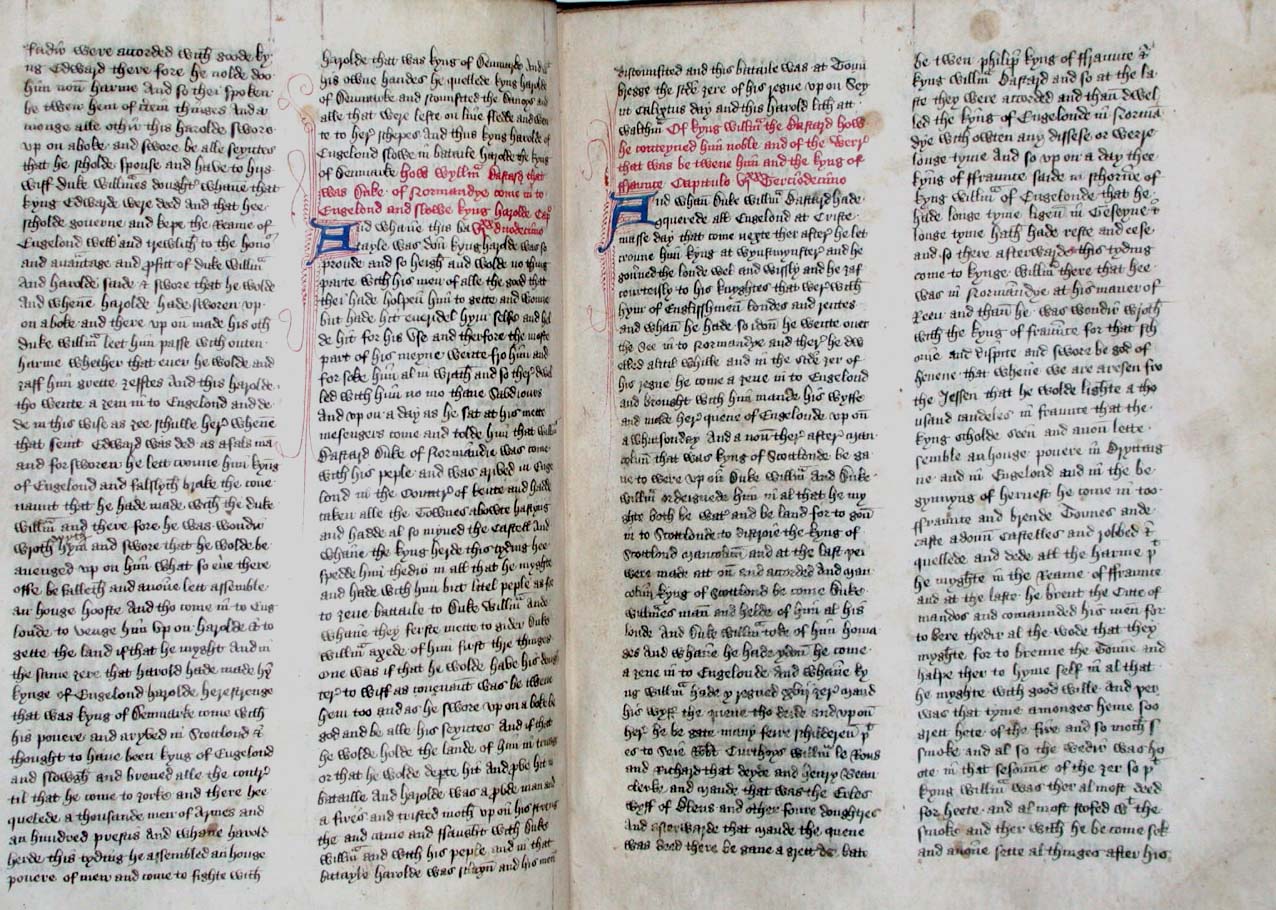 kudiw were accorded with goode ky
ng Edward there fore he nolde doo
him non harme And so thei spoken
be twen hem of item thinges And a
monge alle othir this harolde swore
vp on a boke and swore be alle seyntes
that he scholde spouse and have to his
wiff duke willmes dought whane that
kyng Edwarde were deed and that hee
scholde governe and kepe the Reame of
Engelond well and trewlich to the hono
and avantage and pfitt of duke willm
And harolde saide & swore that he wolde
And whene harolde hade sworen vp
on a boke and there vp on made his oth
duke willm leet him passe with outen
harme whether that euer he wolde and
zaff him grette zefftes And this harolde
tho wente a zein in to Engelond and de
de in this wise as zee schulle here whene
that seint Edward was ded as a fals ma
and forsworen he lett crowne him kyng
of Engelond and falslych brake the coue
naunt that he hade made with the duke
willm and there fore he was wondir
wroth hym and swore that he wolde be
auenged vp on him what so euer there
offe be falleth and anone lett assemble
an houge hooste And tho come in to Eng
londe to venge him vp on harolde & to
gette the land if that he myght And in
the same zere that harold hade made hy
kynge of Engelond harolde herestrenge
that was kyng of Denmarke come with
his powere and aryved in Scotlond &
thought to have been kyng of Engelond
and slowgh and brened alle the contre
til that he come to zorke and there hee
quelede a thousande men of Armes and
an hundred prestis and whane harold
herde this tyding he assembled an houge
powere of men and come to fighte with
harolde that was kyng of Denmarke And
his owne handes he quellede kyng harolde
of Denmarke and scomfited the Danoys and
alle that were lefte on liue fledde and wen
te to her schepes And thus kyng harolde of
Engelond slowe in bataile harolde the kyng
of Denmarke how Wyllm Bastard that
was Duke of Normandye come in to
Engelond and slowe kyng harolde Cap
And whane this ba duodecimo
tayle was don kyng harolde was so
proude and so heigh and wolde no thing
parte with his men of alle the good that
thei hade holpen him to gette and wonne
but hade hit euerdel hym selfe and hel
de hit for his vse and therfore the moste
part of his meyne wente fro him and
for soke him al in wrath and so ther dwel
led with him no mo thane Sawdiours
And vp on a day as he sat at his mete
mesengers come and tolde him that willm
Bastard Duke of Normandie was come
with his peple and was arived in Enge
lond in the countre of kente and hadde
taken alle the Townes abowte hastyng
and hadde al so myned the Castell And
whane the kyng herde this tyding hee
spedde him thedir in all that he myghte
and hade with him but litel peple as for
to zeue bataile to Duke willm And
whane they ferste mette to gider Duke
willm axede of him furst thre thinges
One was if that he wolde have his dough
ter to wiff as couenant was be twene
hem too and as he swore vp on a boke be
god and be alle his seyntes And if that
he wolde holde the lande of him in truage
or that he wolde depte hit And pve hit in
bataille And harolde was a prude man and
a fiers and tristed moch vp on his strengthe
the and came and ffaught with Duke
willm and with his peple and in that
batayle harolde was slayn and his men
discomfited and this bataile was at Toun
bregge the ferste zere of his regne vp on Sey
nt Calixtus day and this harold lith att
waltham Of kyng willm the bastard how
he conteyned him noble and of the werr
that was be twene him and the kyng of
ffraunce Capitulo Terciodecimo
And whan Duke willm Bastard hade
conquerede all Engelond at Criste
masse day that come nexte ther after he let
crowne him kyng at wynstmynster and he
gouned the londe wel and wisly and he zaf
courtesly to his knyghtes that wer with
hym of Englisshmen londes and rentes
and whan he hade so idon he wente ouer
the see in to Normandye and ther he dw
elled alitil whille and in the side zer of
his regne he come a zene in to Engelond
and brought with him mande his wyffe
and made her quene of Engelonde vp on
a whitsonday And a non ther after man
colum that was kyng of Scotlonde be ga
ne to were vp on Duke willm and Duke
willm ordeignede him in al that he my
ghte both be water and be land for to gon
in to Scotlonde to distroie the kyng of
Scotlond Mancolum and at the last per
were made att on and accorded And man
colum kyng of Scotlond be come Duke
willmes man and helde of him al his
londe And Duke willm toke of him homa
ges and whane he hade ydon he come
a zene in to Engelonde and whane ky
ng willm hade y regned xviij zer mand
his wyff the quene tho deide and vpon
her he be gate many feire schilderen pt
es to seie Robt Curthoys willm le Rous
and Richard that deyde and henry Beau
clerke and maude that was the Erles
wyff of Bleus and other foure doughtres
And afterwarde that maude the quene
was deed there be gane a grett de bate
be twen philip kyng of ffraunce &
kyng willm Bastard and so at the la
ste they were accorded and than dwel
led the kyng of Engelonde in Norman
dye with owten any dissese or werre
longe tyme and so vp on a day thee
kyng of ffraunce saide in schorne of
kyng willm of Engelonde that he
hade longe tyme ligen in Gesyne &
longe tyme hath hade reste and eese
and so there afterwardes this tyding
come to kynge willm there that hee
was in Normandye at his maner of
Reen and than he was wondir wroth
with the kyng of fraunce for that sch
orne and dispite and swore be god of
heuene that whene we are aresen fro
the Jessen that he wolde lighte a tho
usand candeles in fraunce that the
kyng scholde seen and anon lette
semble an houge powere in Bryttaig
ne and in Engelond and in the be
gynnyng of heruest he come in too
ffraunce and brende Tounes and
caste adoun Castelles and robbed &
quellede and dede all the harme pt
he myghte in the Reame of ffraunce
and at the laste he brent the Citte of
mandos and comanded his men for
to bere thedir al the wode that they
myghte for to brenne the Toune and
halpe ther to hyme self in al that
he myghte with good wille and per
was that tyme amonges heme soo
grett hete of the fire and so moch s
smoke and al so the wedir was ho
ote in that sesoune of the zer so pt
kyng willm was ther al most deed
for heete and al most stofed wt the
smoke and ther with he be come sek
and anone sette al thinges after his